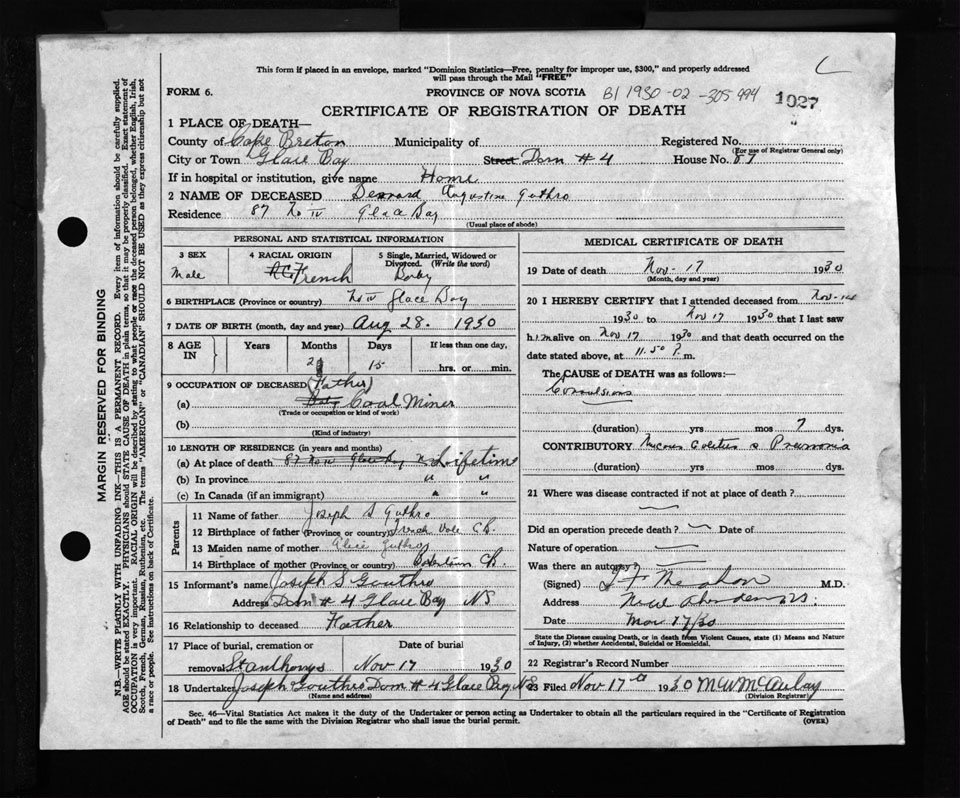 This form if placed in an envelope, marked "Dominion Statistics—Free, penalty for improper use, $300," and properly addressed
will pass through the Mail "FREE"
FORM 6.
PROVINCE OF NOVA SCOTIA B1 1930-02-305994 1027
CERTIFICATE OF REGISTRATION OF DEATH
1 PLACE OF DEATH—
County of Cape Breton Municipality of Registered No.
(For use of Registrar General only)
City or Town Glace Bay Street Dom #4 House No. 87
If in hospital or institution, give name Home
2 NAME OF DECEASED Bernard Augustine Guthro
Residence 87 No IV Glace Bay
(Usual place of abode)
PERSONAL AND STATISTICAL INFORMATION
3 SEX
Male
4 RACIAL ORIGIN
French
5 Single, Married, Widowed or
Divorced. (Write the word)
6 BIRTHPLACE (Province or country) No IV Glace Bay
7 DATE OF BIRTH (month, day and year) Aug 28. 1930
8 AGE IN
Years Months Days If less than one day,
2 15 hrs. or min.
9 OCCUPATION OF DECEASED (Father)
(a) Coal Miner
(Trade or occupation or kind of work)
(b)
(Kind of industry)
10 LENGTH OF RESIDENCE (in years and months)
(a) At place of death 87 No IV Glace Bay Lifetime
(b) In province " "
(c) In Canada (if an immigrant) " "
Parents
11 Name of father Joseph S Guthro
12 Birthplace of father (Province or country) French Vale CB.
13 Maiden name of mother Alice Guthro
14 Birthplace of mother (Province or country) CB.
15 Informant's name Joseph S Gouthro
Address Dom #4 Glace Bay NS
16 Relationship to deceased Father
17 Place of burial, cremation or Date of burial
removal St Anthonys Nov 17 1930
18 Undertaker Joseph Gouthro Dom #4 Glace Bay NS
(Name and address)
MEDICAL CERTIFICATE OF DEATH
19 Date of death Nov-17 1930
(Month, day and year)
20 I HEREBY CERTIFY that I attended deceased from Nov-14
1930 to Nov 17 1930 that I last saw
him alive on Nov 17 1930 and that death occurred on the
date stated above, at 11.50 P.m.
The CAUSE of DEATH was as follows:—
Convulsions
(duration) yrs mos 7 dys.
CONTRIBUTORY Mucous Colitis & Pneumonia
(duration) yrs mos dys.
21 Where was disease contracted if not at place of death?
Did an operation precede death? Date of
Nature of operation
Was there an autopsy?
(Signed) M.D.
Address New Aberdeen NS.
Date Nov 17/30
State the Disease causing Death, or in death from Violent Causes, state (1) Means and Nature
of Injury, (2) whether Accidental, Suicidal or Homicidal.
22 Registrar's Record Number
23 Filed Nov 17th 1930 McAulay
(Division Registrar)
Sec. 46—Vital Statistics Act makes it the duty of the Undertaker or person acting as Undertaker to obtain all the particulars required in the "Certificate of Registration
of Death" and to file the same with the Division Registrar who shall issue the burial permit. (OVER)
MARGIN RESERVED FOR BINDING
N.B.—WRITE PLAINLY WITH UNFADING INK—THIS IS A PERMANENT RECORD. Every item of information should be carefully supplied.
AGE should be stated EXACTLY. PHYSICIANS should STATE CAUSE OF DEATH in plain terms, so that it may be properly classified. Exact statement of
OCCUPATION is very important. RACIAL ORIGIN will be described by stating to what people or race the deceased person belonged, whether English, Irish,
Scotch, French, German, Russian, Ruthenian, etc. The terms "AMERICAN" or "CANADIAN" SHOULD NOT BE USED as they express citizenship but not
a race or people. See instructions on back of Certificate.